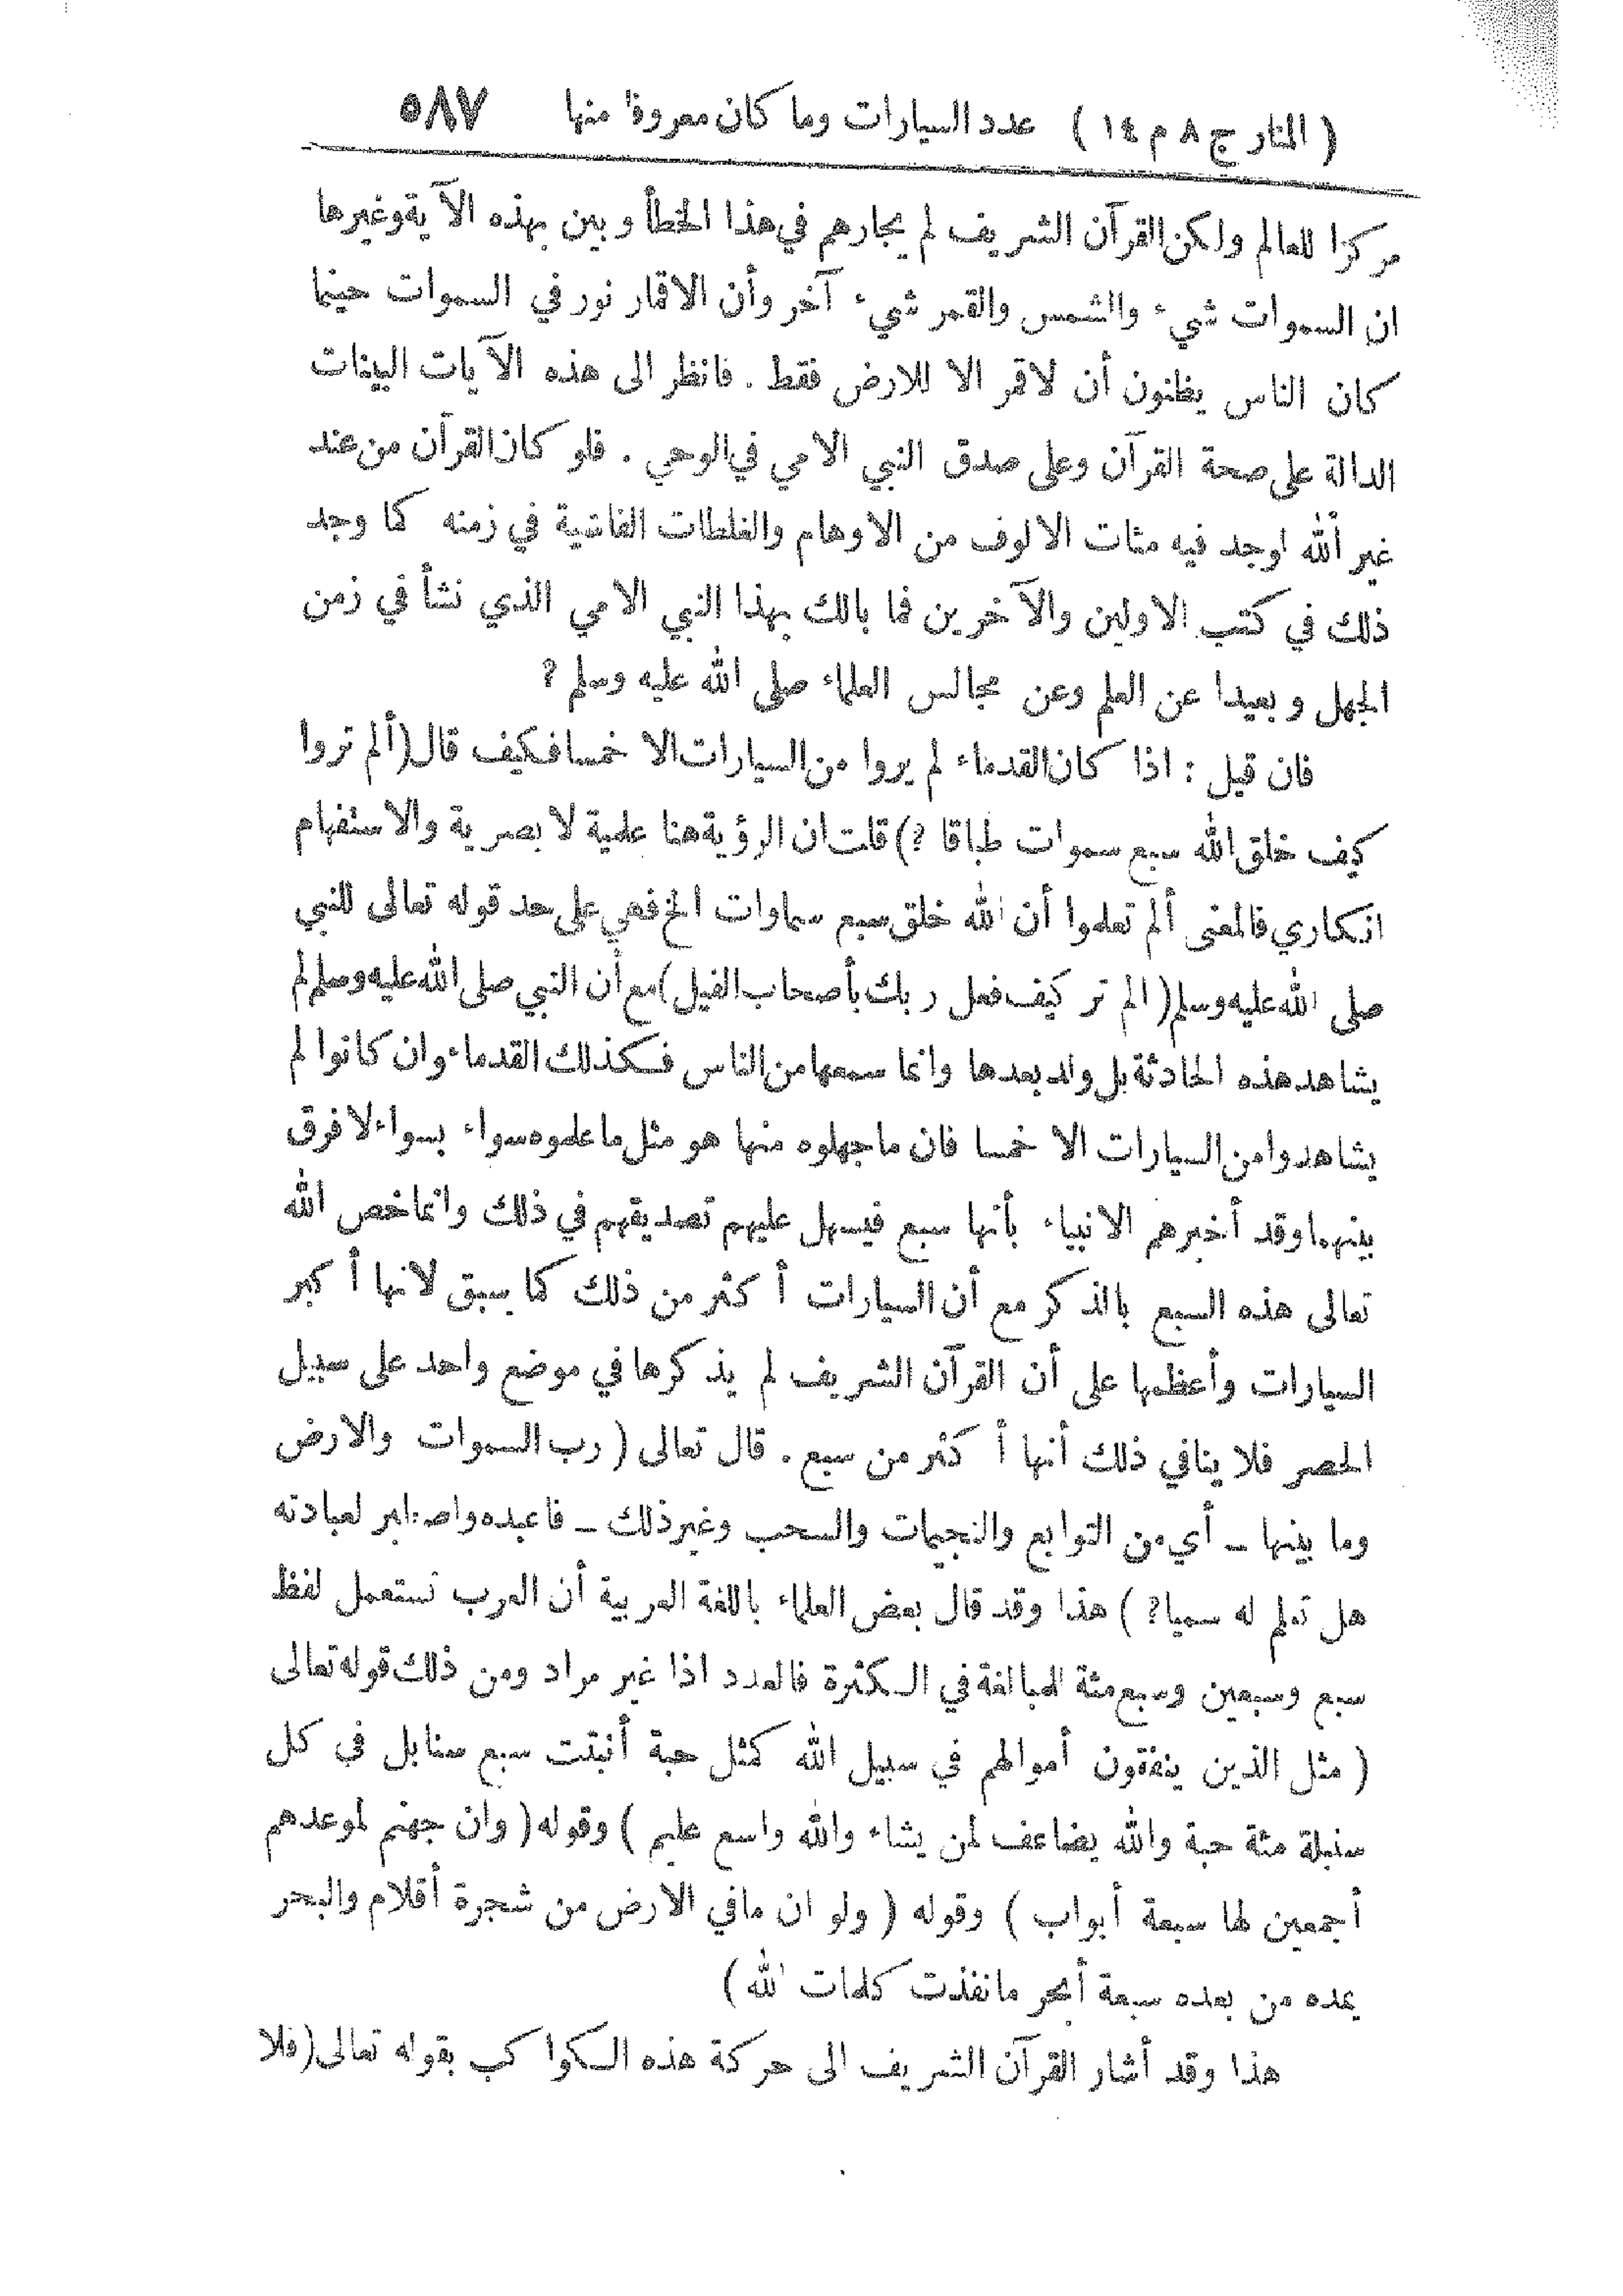 ( المنار ج ٨ م ١٤ ) عدد السيارات وما كان معروفا منها ٥٨٧
مركزا للعالم ولكن القرآن الشريف لم يجارهم في هذا الخطأ و بين بهذه الآية وغيرها
ان السموات شيء والشمس والقمر شيء آخر وأن الاقمار نور في السموات حينما
كان الناس يظنون أن لاقمر الا للارض فقط . فانظر الى هذه الآيات البينات
الدالة على صحة القرآن وعلى صدق النبي الامي في الوحي . فلو كان القرآن من عند
غير الله لوجد فيه مئات الالوف من الاوهام والغلطات الفاشية في زمنه كما وجد
ذلك في كتب الاولين والآخرين فما بالك بهذا النبي الامي الذي نشأ في زمن
الجهل و بعيدا عن العلم وعن مجالس العلماء صلى الله عليه وسلم ?
فان قيل : اذا كان القدماء لم يروا من السيارات الا خمسا فكيف قال (ألم تروا
كيف خلق الله سبع سموات طباقا ?) قلت ان الرؤية هنا علمية لا بصرية والاستفهام
انكاري فالمعنى ألم تعلموا أن الله خلق سبع سماوات الخ فهي على حد قوله تعالى للنبي
صلى الله عليه وسلم ( الم تر كيف فعل ر بك بأصحاب الفيل ) مع أن النبي صلى الله عليه وسلم لم
يشاهد هذه الحادثة بل ولد بعدها وانما سمعها من الناس فكذلك القدماء وان كانوا لم
يشاهدوا من السيارات الا خمسا فان ما جهلوه منها هو مثل ما علموه سواء بسواء لا فرق
بينهما وقد أخبرهم الانبياء بأنها سبع فيسهل عليهم تصديقهم في ذلك وانما خص الله
تعالى هذه السبع بالذكر مع أن السيارات أكثر من ذلك كما سبق لانها أكبر
السيارات وأعظمها على أن القرآن الشريف لم يذكرها في موضع واحد على سبيل
الحصر فلا ينافي ذلك أنها أكثر من سبع . قال تعالى ( رب السموات والارض
وما بينها ــ أي من التوابع والنجيمات والسحب وغير ذلك ــ فاعبده واصطبر لعبادته
هل تعلم له سميا? ) هذا وقد قال بعض العلماء باللغة العربية أن العرب تستعمل لفظ
سبع وسبعين وسبع مئة للمبالغة في الكثرة فالعدد اذا غير مراد ومن ذلك قوله تعالى
( مثل الذين ينفقون أموالهم في سبيل الله كمثل حبة أنبتت سبع سنابل في كل
سنبلة مئة حبة والله يضاعف لمن يشاء والله واسع عليم ) وقوله ( وان جهنم لموعدهم
أجمعين لها سبعة أبواب ) وقوله ( ولو ان مافي الارض من شجرة أقلام والبحر
يمده من بعده سبعة أبحر مانفذت كلمات الله )
هذا وقد أشار القرآن الشريف الى حركة هذه الكواكب بقوله تعالى ( فلا